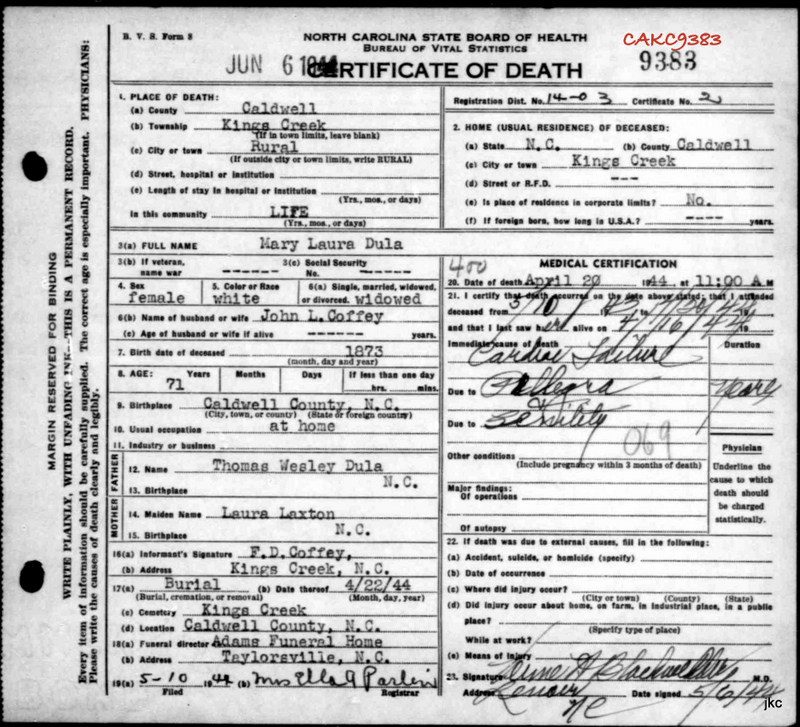 B. V. S. Form 8
NORTH CAROLINA STATE BOARD OF HEALTH
BUREAU OF VITAL STATISTICS
CAKC9383
JUN 6 1944
CERTIFICATE OF DEATH
9383
MARGIN RESERVED FOR BINDING
WRITE PLAINLY, WITH UNFADING INK--THIS IS A PERMANENT RECORD.
Every item of information should be carefully supplied. The correct age is especially important. PHYSICIANS:
Please write the causes of death clearly and legibly.
1. PLACE OF DEATH:
(a) County Caldwell
(b) Township Kings Creek
(If in town limits, leave blank)
(c) City or town Rural
(If outside city or town limits, write RURAL)
(d) Street, hospital or institution
(e) Length of stay in hospital or institution
(Yrs., mos., or days)
In this community LIFE
(Yrs., mos. or days)
Registration Dist. No. 14-03 Certificate No. 2
2. HOME (USUAL RESIDENCE) OF DECEASED:
(a) State N.C. (b) County Caldwell
(c) City or town Kings Creek
(d) Street or R.F.D. ---
(e) Is place of residence in corporate limits? No.
(f) If foreign born, how long in U.S.A.? ---- years.
3(a) FULL NAME Mary Laura Dula
3(b) If veteran, name war ------ 3(c) Social Security No. ------
4. Sex female
5. Color or Race white
6(a) Single, married, widowed, or divorced. widowed
6(b) Name of husband or wife John L. Coffey
(c) Age of husband or wife if alive ------- years.
7. Birth date of deceased 1873
(month, day and year)
8. AGE: Years Months Days If less than one day
71 hrs. mins.
9. Birthplace Caldwell County, N.C.
(City, town, or county) (State or foreign country)
10. Usual occupation at home
11. Industry or business
FATHER
12. Name Thomas Wesley Dula
13. Birthplace N.C.
MOTHER
14. Maiden Name Laura Laxton
15. Birthplace N.C.
16(a) Informant's Signature F.D. Coffey,
(b) Address Kings Creek, N.C.
17(a) Burial (b) Date thereof 4/22/44
(Burial, cremation, or removal) (Month, day, year)
(c) Cemetery Kings Creek
(d) Location Caldwell County, N.C.
18(a) Funeral director Adams Funeral Home
(b) Address Taylorsville, N.C.
19(a) 5-10 1944 (b) Mrs Ella
Filed Registrar
400
MEDICAL CERTIFICATION
20. Date of death April 20 1944 at 11:00 A M
21. I certify that death occurred on the date above stated; that I attended
deceased from 3/10
and that I last saw her alive on 4/16/44 19
Immediate cause of death Duration
Cardiac Failure
Due to Pellegra years
Due to
069
Other conditions
(Include pregnancy within 3 months of death)
Major findings:
Of operations
Of autopsy
Physician
Underline the cause to which death should be charged statistically.
22. If death was due to external causes, fill in the following:
(a) Accident, suicide, or homicide (specify)
(b) Date of occurrence
(c) Where did injury occur?
(City or town) (County) (State)
(d) Did injury occur about home, on farm, in industrial place, in a public
place?
(Specify type of place)
While at work?
(e) Means of injury
23. Signature M.D.
Address Lenoir NC Date signed 5/6/44
jkc